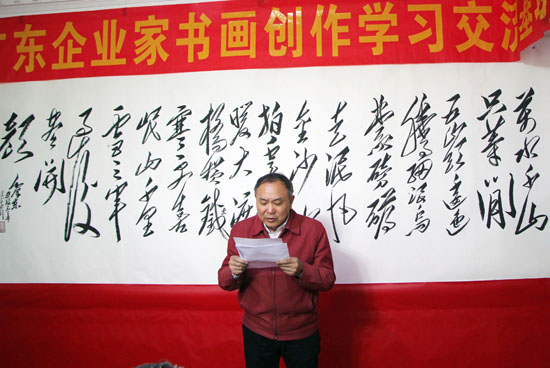 广东企业家书画创作学习交流基
万水千山
只等闲
五岭逶迤
腾细浪乌
蒙磅礴
走泥丸
金沙水
拍云
暖大渡
桥横铁
寒更喜
岷山千里
雪三军
过后
尽开
颜